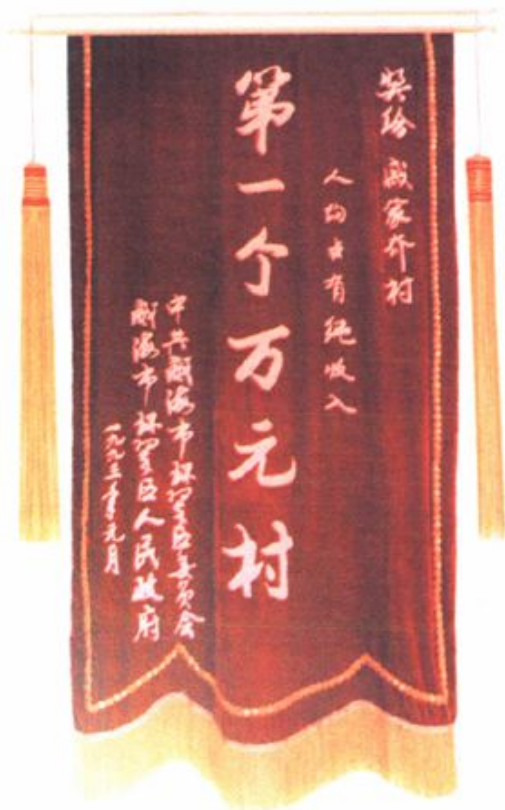 奖给 戚家夼村
人均占有纯收入
第一个万元村
中共威海市环翠区委员会
威海市环翠区人民政府
一九九三年元月